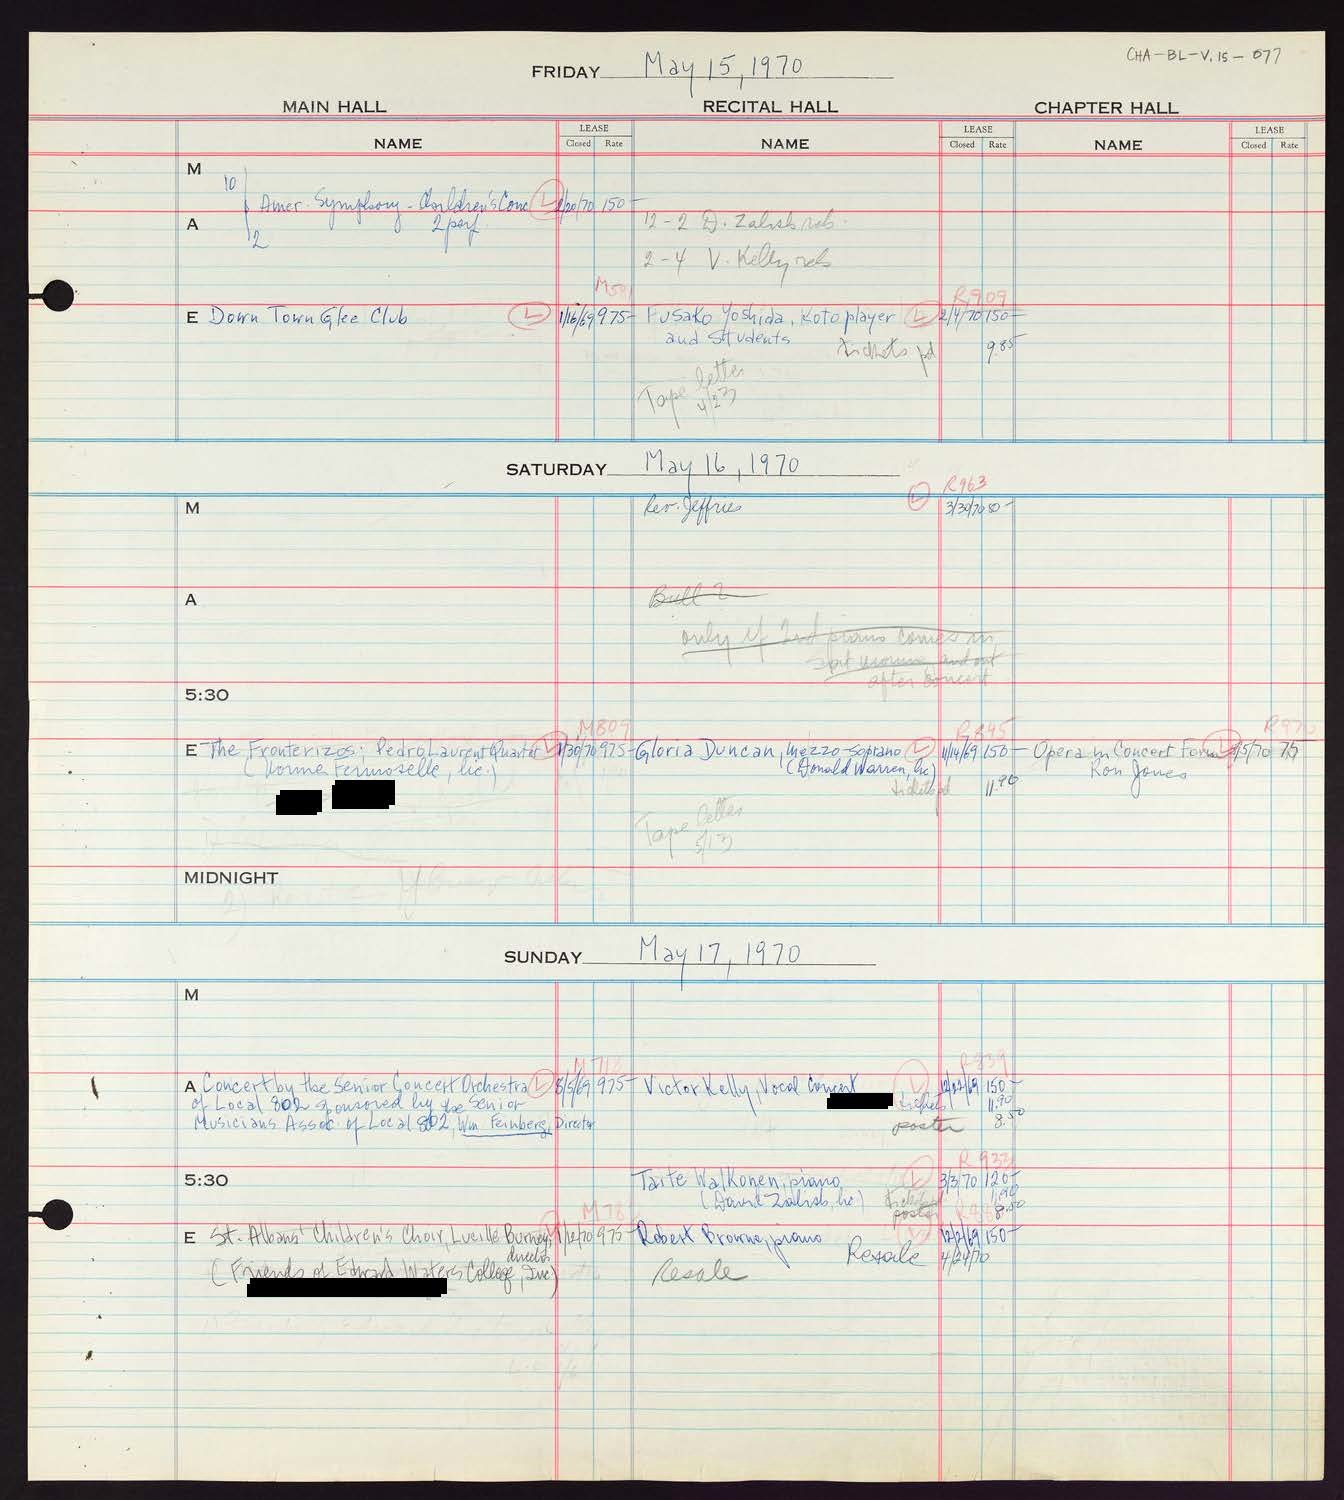 CHA-BL-V.15-077
FRIDAY May 15, 1970
MAIN HALL RECITAL HALL CHAPTER HALL
LEASE LEASE LEASE
NAME Closed Rate NAME Closed Rate NAME Closed Rate
M
10
Amer. Symphony - Children's Conc L 1/20/70 150-
A 2 perf. 12-2 D. Zalish reh.
2
2-4 V. Kelly reh
R909
E Down Town Glee Club L 1/16/69 975- Fusako Yoshida, Koto player L 2/4/70 150-
and Students tickets pd 9.85
Tape letter
4/23
SATURDAY May 16, 1970
R963
M Rev. Jeffries L 3/30/70 80-
A Bull
only if 2nd piano comes in
after concert
5:30
M809 R845 R970
E The Fronterizos: Pedro Laurent Quartet L 1/30/70 975- Gloria Duncan, Mezzo-Soprano L 11/14/69 150- Opera in Concert Form L 75
(Norma Fermoselle, lic.) (Donald Warren, lic) Ron Jones
tickets pd 11.90
Tape letter
5/13
MIDNIGHT
SUNDAY May 17, 1970
M
M718 R839
A Concert by the Senior Concert Orchestra L 5/5/69 975- Victor Kelly, Vocal Concert L 150-
of Local 802 sponsored by the Senior tickets 11.90
Musicians Assoc. of Local 802, Wm. Feinberg, Director poster 8.50
R932
5:30 Taite Walkonen, piano L 3/3/70 120-
(David Zalish, lic) tickets 11.90
M78 poster 8.50
E St. Albans' Children's Choir, Lucille Burney, L 975- Robert Browne, piano 12/2/69 150-
director Resale 4/24/70
(Friends of Edward Waters College, Inc) Resale